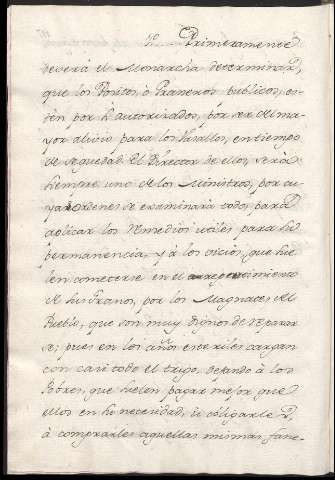 1º Primeramente
deverá el Monarcha determinar,
que los Positos, ò Graneros publicos, es-
ten por si autorizados, por ser de ma-
yor alivio para los Vasallos, en tiempo
de seguedad. El Director de ellos, será
siempre uno de los Ministros, por cu-
yas ordenes se examinará todo, para
aplicar los remedios utiles para su
permanencia, y á los vicios, que sue-
len cometerse en el repartimiento
de sus Granos, por los Magnates del
Pueblo, que son muy dignos de reparar
se; pues en los años esteriles cargan
con casi todo el trigo, dejando à los
Pobres, que suelen pagar mejor que
ellos en su necesidad, ù obligarles
à comprarles aquellas mismas fane-